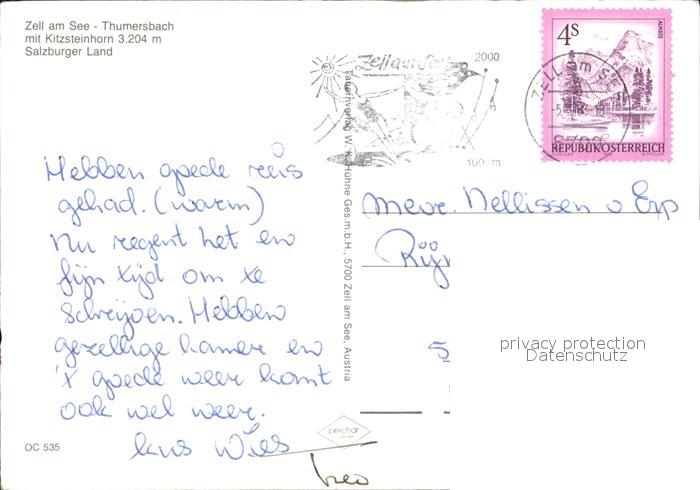 Zell am See - Thumersbach
mit Kitzsteinhorn 3.204 m
Salzburger Land
Zell am See
2000
1000 m
4s
ALMSEE
ZELL am SEE
REPUBLIK ÖSTERREICH
Hebben goede reis
gehad. (warm)
Nu regent het en
fijn tijd om te
schrijven. Hebben
gezellige kamer en
't goede weer komt
ook wel weer.
kus Wies
Leo
Tauernverlag W. K. Höhne Ges.m.b.H., 5700 Zell am See, Austria
Mevr. Nellissen v Erp
Rijn
5
privacy protection
Datenschutz
pechar
OC 535